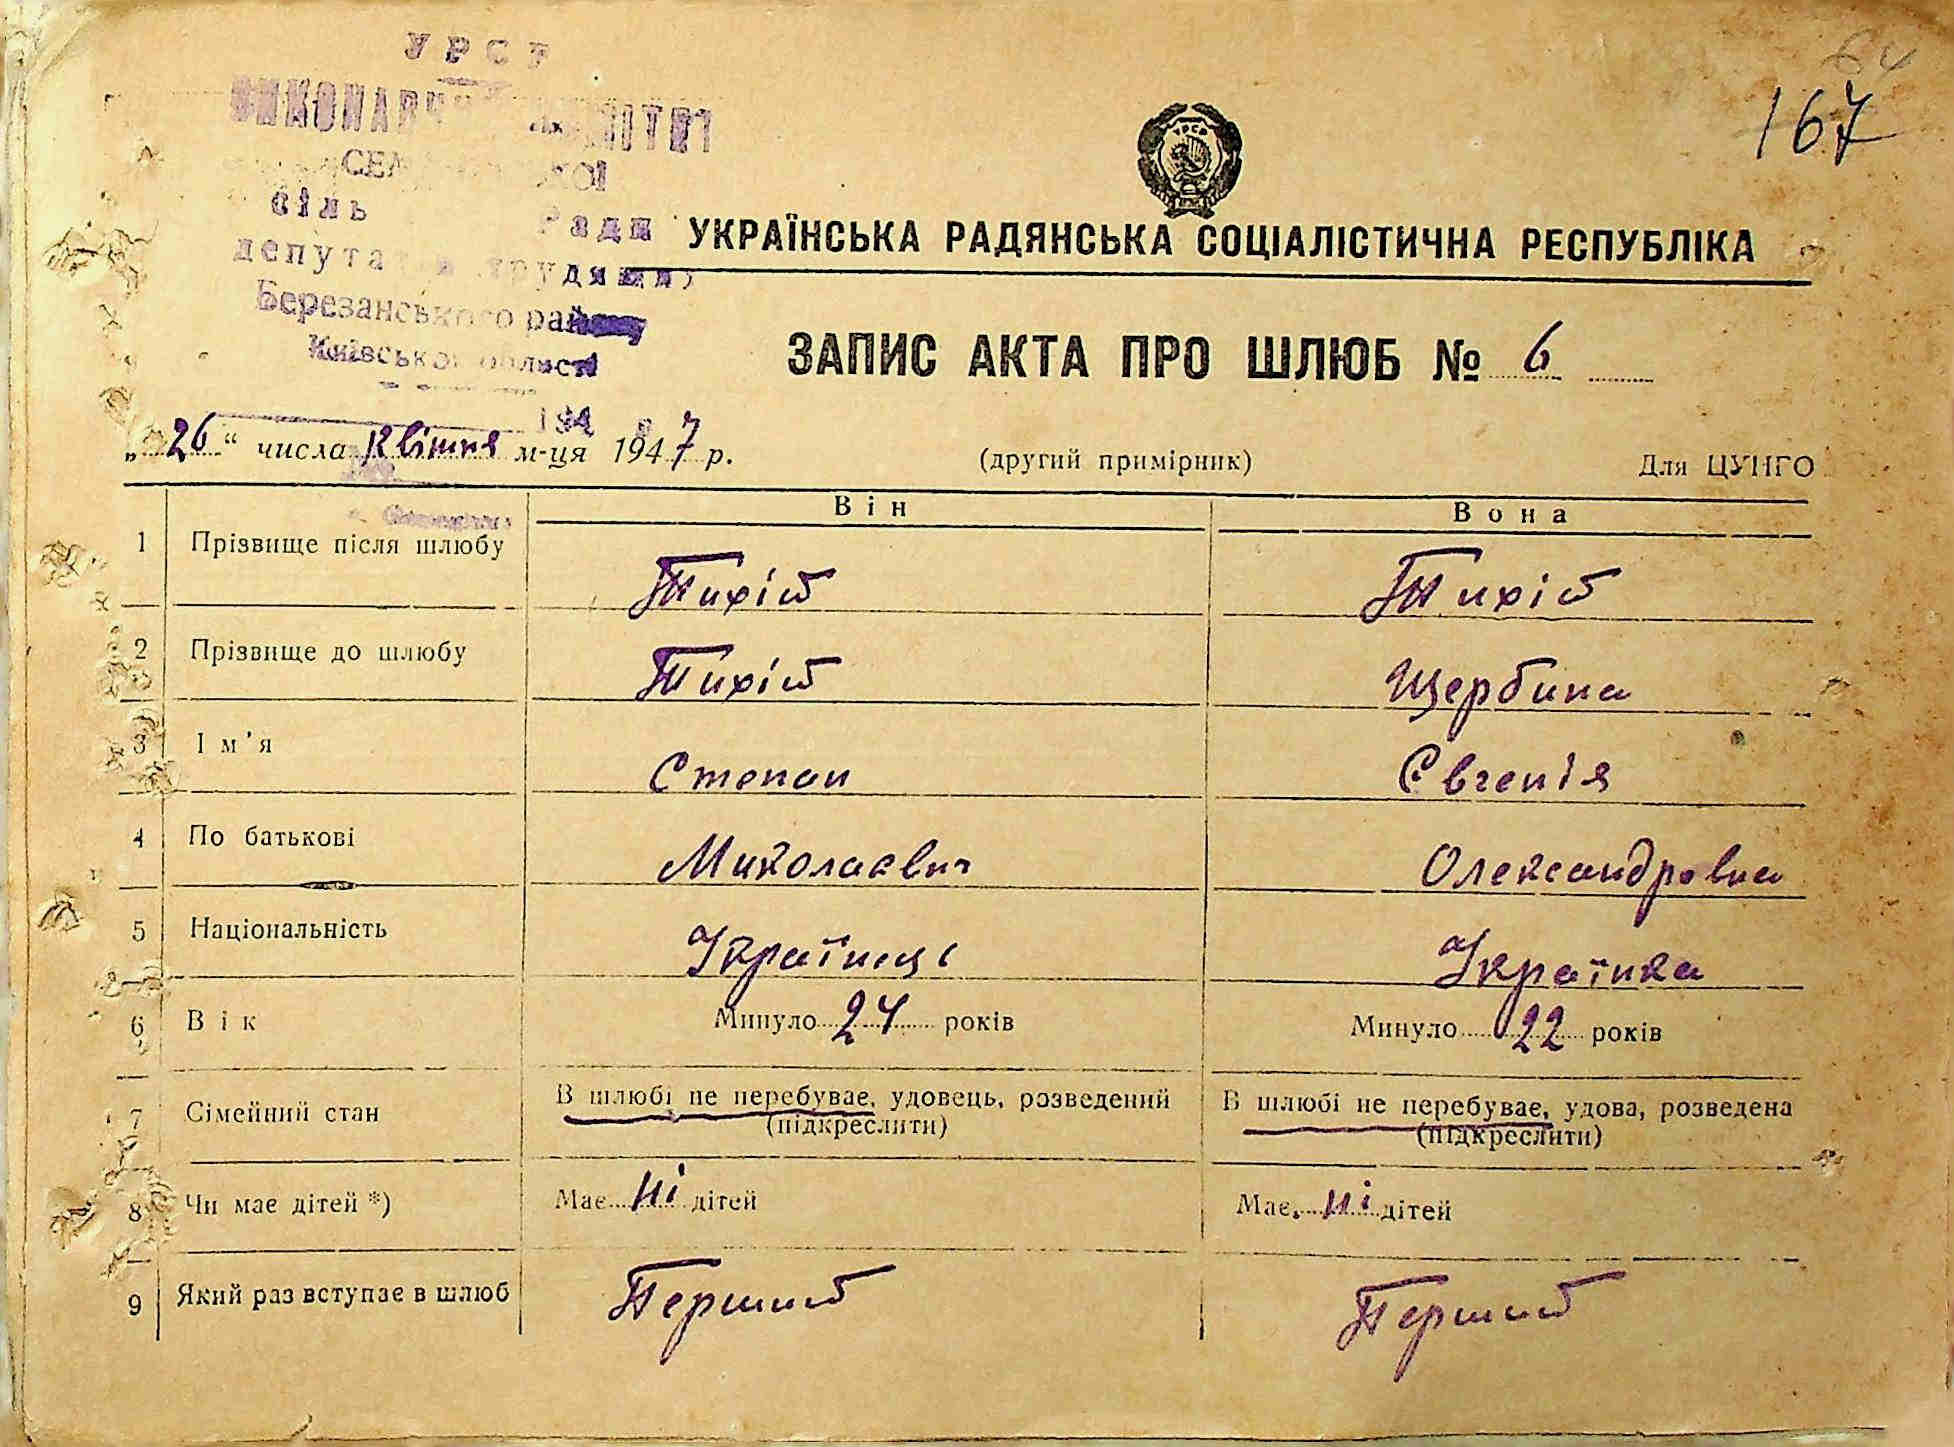 УРСР
ВИКОНАВЧ КОМІТЕТ
СЕМ КОЇ
сіль Ради
депутатів трудящих
Березанського району
Київської області
194 р
64
167
УРСР
УКРАЇНСЬКА РАДЯНСЬКА СОЦІАЛІСТИЧНА РЕСПУБЛІКА
ЗАПИС АКТА ПРО ШЛЮБ № 6
„26“ числа квітня м-ця 1947 р. (другий примірник) Для ЦУНГО
Він Вона
1 Прізвище після шлюбу Тихій Тихій
2 Прізвище до шлюбу Тихій Щербина
3 Ім'я Степан Євгенія
4 По батькові Миколаєвич Олександровна
5 Національність Українець Українка
6 Вік Минуло 24 років Минуло 22 років
7 Сімейний стан В шлюбі не перебуває, удовець, розведений В шлюбі не перебуває, удова, розведена
(підкреслити) (підкреслити)
8 Чи має дітей *) Має ні дітей Має ні дітей
9 Який раз вступає в шлюб Перший Перший